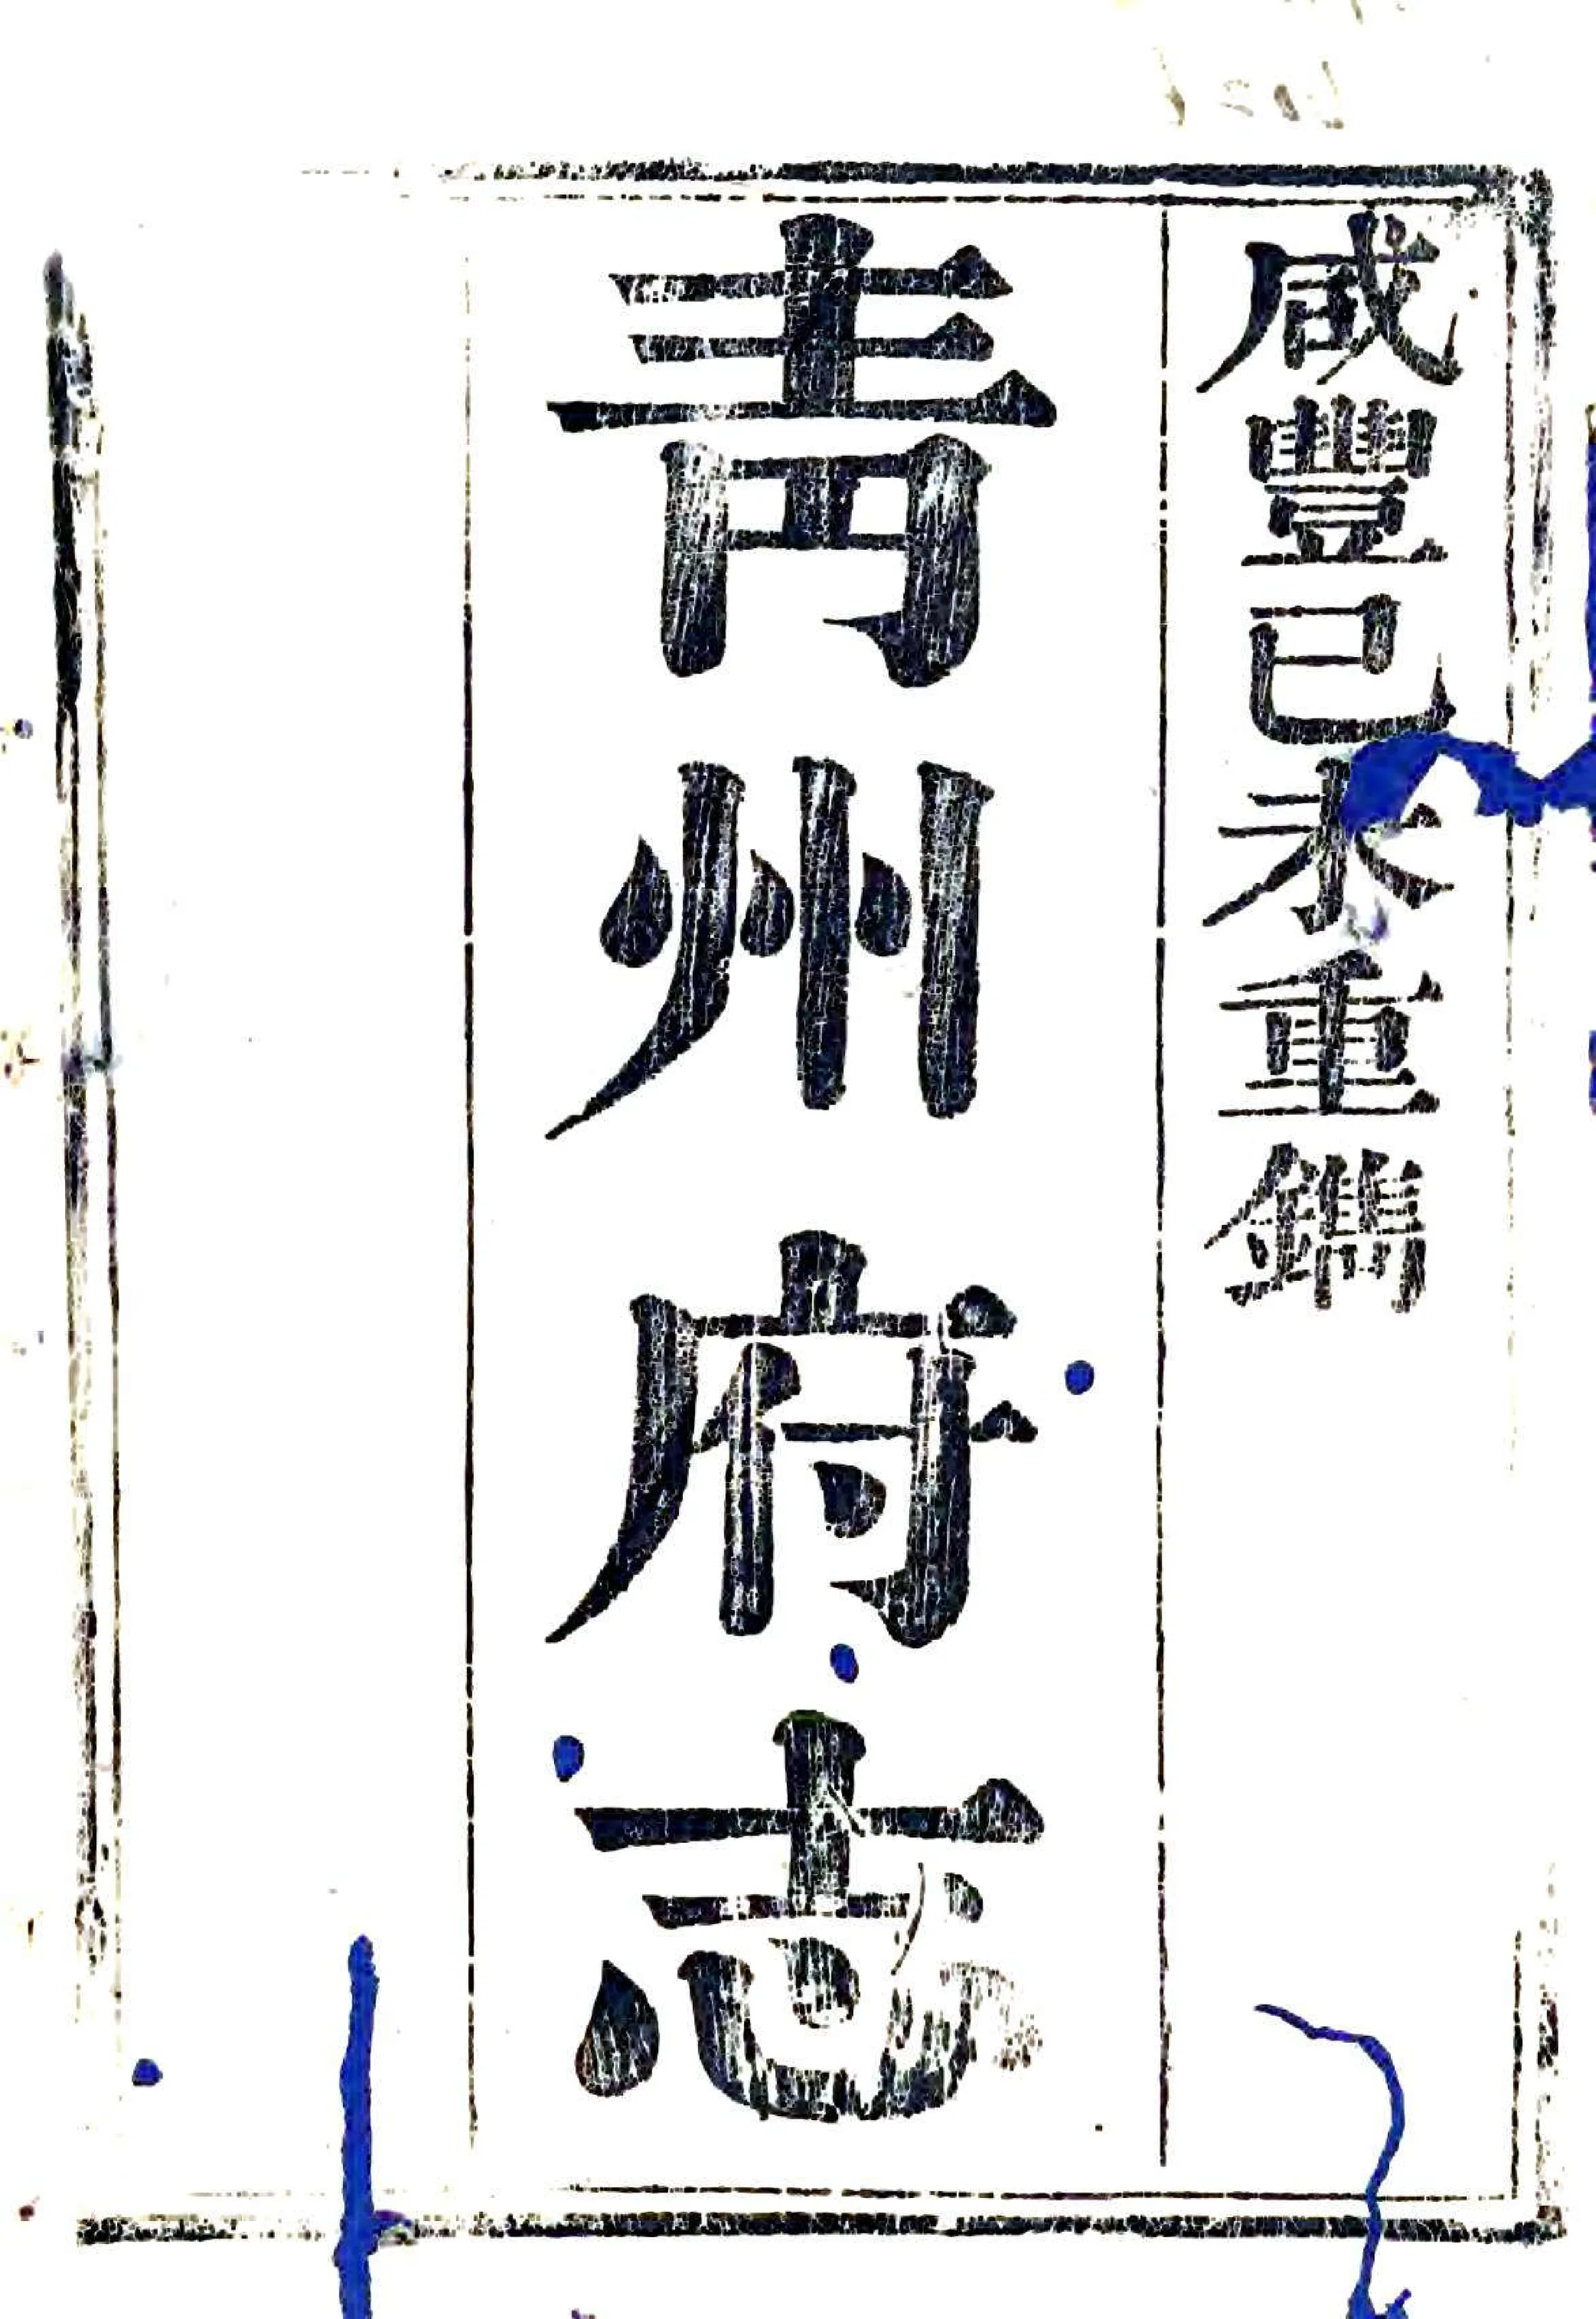 咸豐已未重鐫
青州府志